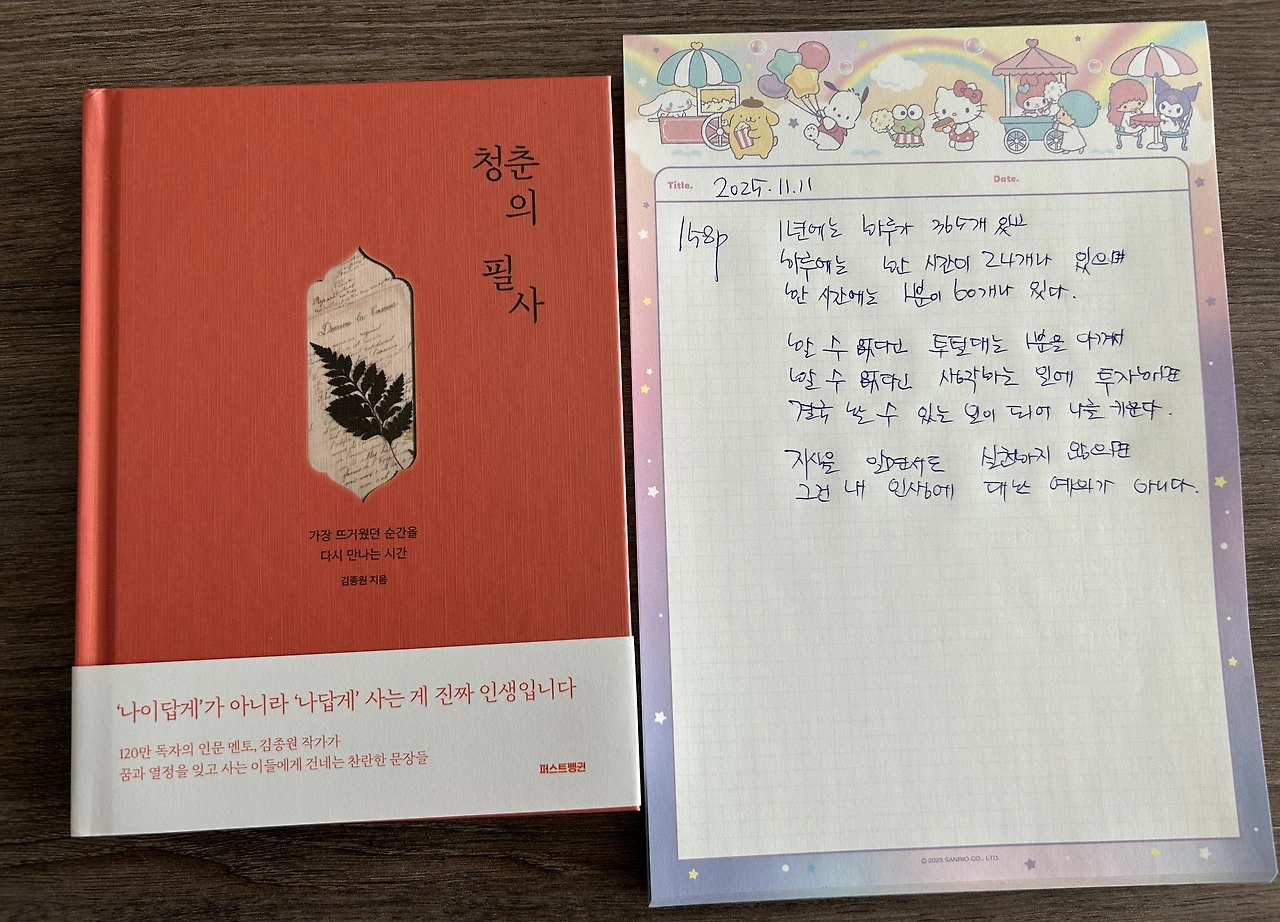 청춘
의
필
사
가장 뜨거웠던 순간을
다시 만나는 시간
김종원 지음
'나이답게'가 아니라 '나답게' 사는 게 진짜 인생입니다
120만 독자의 인문 멘토, 김종원 작가가
꿈과 열정을 잊고 사는 이들에게 건네는 찬란한 문장들
퍼스트펭귄
Title. 2025.11.11 Date.
158p
1년에는 하루가 365개 있고
하루에는 한 시간이 24개나 있으며
한 시간에는 1분이 60개나 있다.
할 수 없다고 투덜대는 1분을 다 가져다
할 수 없다고 생각하는 일에 투자하면
결국 할 수 있는 일이 되어 나를 키운다.
지식을 알면서도 실천하지 않으면
그건 내 인생에 대한 예의가 아니다.
© 2023 SANRIO CO., LTD.